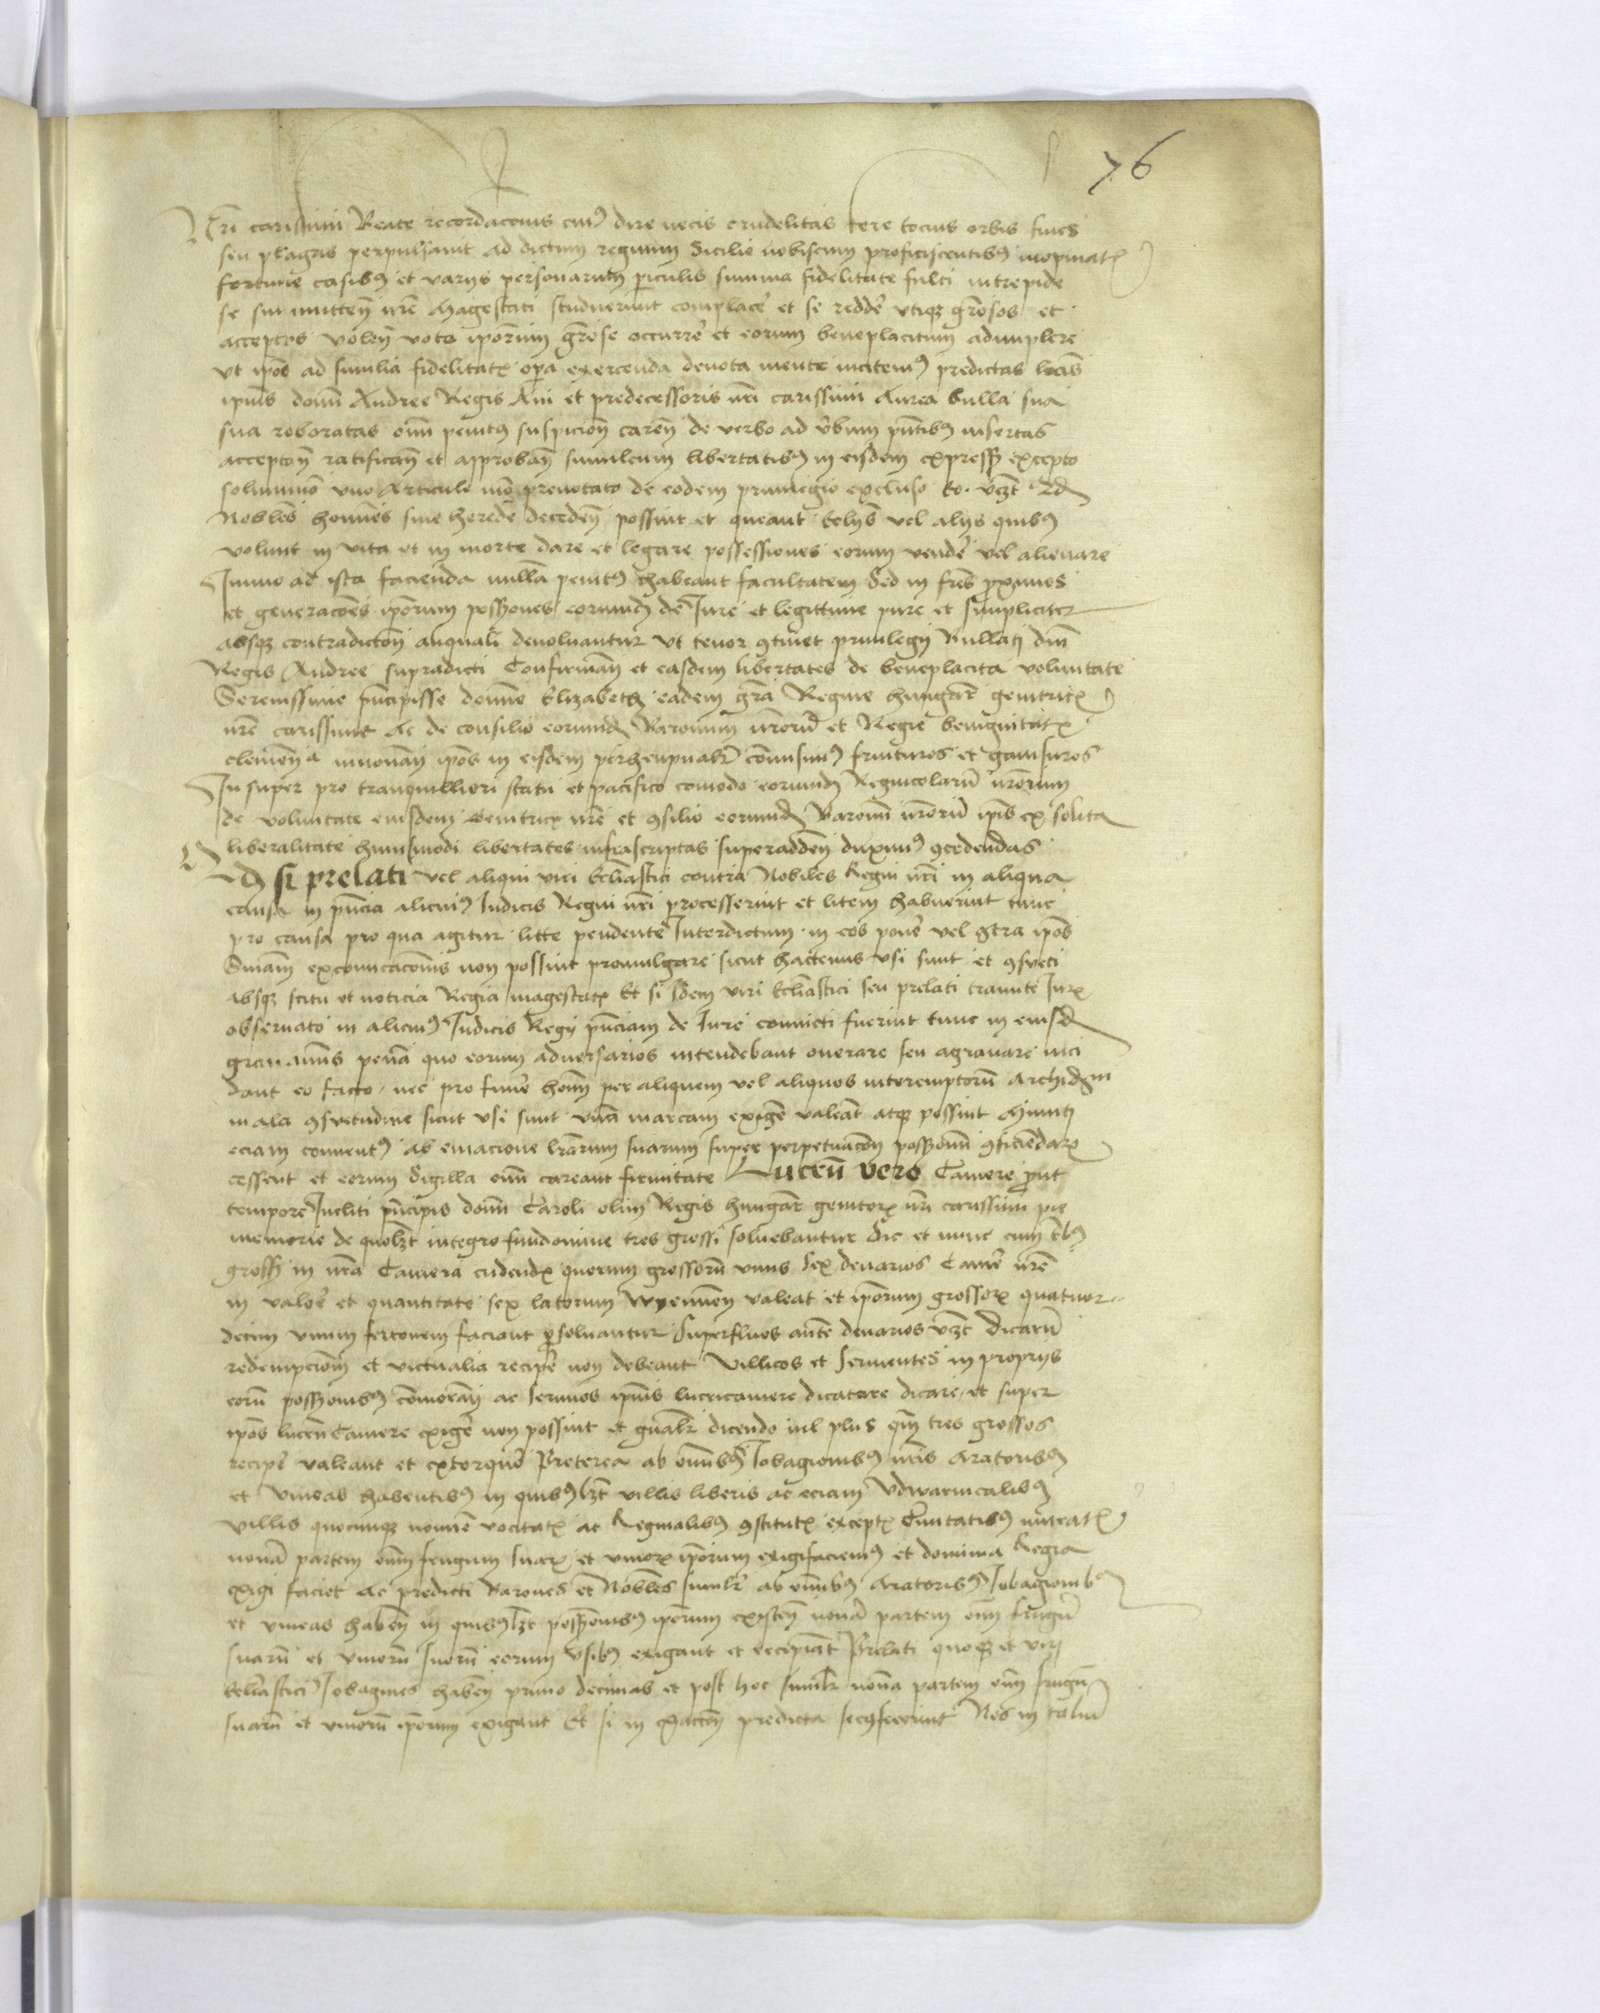 76
Nri carissimi Beate recordacionis cui9 dire necis crudelitas fere tocius orbis fines
seu plagas perpulsavit ad dictum regnum Sicilie nobiscum proficiscentib9 inopinat
fortune casib9 et varys personarum periculis summa fidelitate fulti intrepide
se summitten nre Magestati studuerunt complacer et se redder utiq grosos et
acceptos volen vota iporum grose occurrer et eorum beneplacitum adimplere
ut ipos ad similia fidelitat opa exercenda devota mente incitem9 predictas lras
ipius domi Andree Regis Avi et predecessoris nri carissimi Aurea bulla sua
sua roboratas omi penit9 suspicion caren de verbo ad verbum pntib9 insertas
accepton ratifican et approban simulcum libertatib9 in eisdem express excepto
solummo uno Articulo mo prenotato de eodem privilegio excluso eo. vzt Qd
Nobiles homines sine herede deceden possint et queant Eclys vel alys quib9
volunt in vita et in morte dare et legare possessiones eorum vender vel alienare
Immo ad ista facienda nulla penit9 habeant facultatem Sed in fres proximos
et generacoes iporum possiones eorumd de Iure et legittime pure et simpliciter
absq contradicton aliquali devolvantur ut tenor gtinet privilegy Bullati dni
Regis Andree supradicti Confirman et easdem libertates de beneplacita voluntate
Serenissime pncipisse domine Elizabeth eadem gra Regine hungarie genitric
nre carissime Ac de consilio eorumd Baronum nrorum et Regie benignitat
clemen innovan ipos in eisdem perhempnalr comisim9 fruituros et gavisuros
In super pro tranquilliori statu et pacifico comodo eorumd Regnicolarum nrorum
de voluntate eiusdem Genitric nre et gsilio eorumd Baronum nrorum ipis ex solita
liberalitate huiusmodi libertates infrascriptas superadden duxim9 gcedendas
Qd si prelati vel aliqui viri Eccliastici contra Nobiles Regni nri in aliqua
causa in pncia alicui9 Iudicis Regni nri processerint et litem habuerint tunc
pro causa pro qua agitur litte pendente Interdictum in eos poner vel gtra ipos
Sniam excomicacionis non possint promulgare sicut hactenus usi sunt et gsueti
absq scitu et noticia Regia magestat Et si idem viri Eccliastici seu prelati tramite Iur
observato in alicui9 Iudicis Regy pnciam de Iure convicti fuerint tunc in eiusd
gravaminis penam quo eorum adversarios intendebant onerare seu agravare inci
dant eo facto. nec pro funer homi per aliquem vel aliquos interemptorum Archidn
mala gsuetudine sicut usi sunt una marcam exiger valeant atq possint Minuti
eciam convent9 ab emacione lrarum suarum super perpetuacon possionum gficiendar
cessent et eorum Sigilla omi careant firmitate Lucrum vero Camere prout
tempore Incliti pncipis domi Caroli olim Regis hungar genitor nri carissimi pie
memorie de quolzt integro fundomine tres grossi solvebantur Sic et nunc cum tb9
gross in nra Camera cudend quorum grossorum unus sex denarios Camer nre
in valore et quantitate sex latorum Wyennen valeat et iporum grossor quatuor
decim unum fertonem faciant psolvantur Superfluos autem denarios vzt Dicarum
redempcionem et victualia reciper non debeant Villicos et Servientes in proprys
eorum possionib9 comoran ac servos ipius lucricamere dicatore dicare et super
ipos lucrum Camere exiger non possint et gnalr dicendo nil plus qm tres grossos
reciper valeant et extorquer Preterea ab omib9 Iobagionib9 nris Aratorib9
et Vineas habentib9 in quib9lzt villis liberis ac eciam Udwarnicalib9
villis quocunq nomine vocitat ac Reginalib9 gstitut except Civitatib9 murat
nonam partem omi frugum suar et vinor iporum exigi faciem9 et domina Regia
exigi faciet Ac predicti Barones et Nobiles similr ab omib9 Aratorib9 Iobagionib9
et vineas haben in quib9lzt possionib9 iporum existen nonam partem omi frugum
suarum et vinorum suorum eorum Usib9 exigant et recipiant Prelati quoq et viri
Eccliastici Iobagines haben primo decimas et post hoc similr nona partem omi frugum
suarum et vinorum iporum exigant Et si in exacton predicta secg fecerint Nos in talium